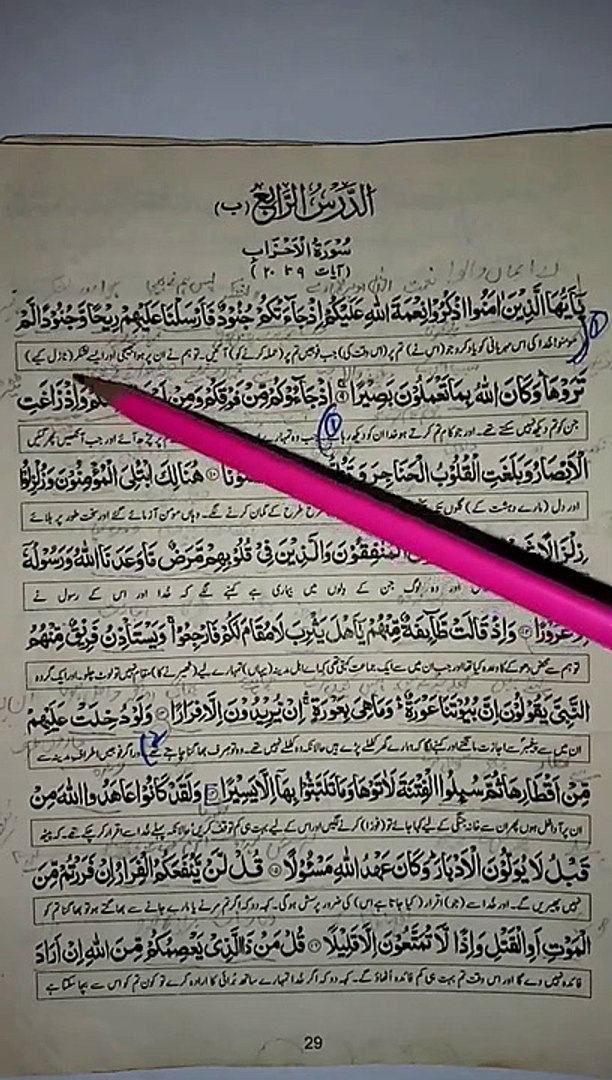 الدَّرْسُ الرَّابِعُ (ب)
سُوْرَةُ الْاَحْزَابِ
(آیات ۹ تا ۲۰)
يٰٓاَيُّهَا الَّذِيْنَ اٰمَنُوا اذْكُرُوْا نِعْمَةَ اللهِ عَلَيْكُمْ اِذْ جَآءَتْكُمْ جُنُوْدٌ فَاَرْسَلْنَا عَلَيْهِمْ رِيْحًا وَّجُنُوْدًا لَّمْ
مومنو! خدا کی اس مہربانی کو یاد کرو جو (اس نے) تم پر (اس وقت کی) جب فوجیں تم پر (حملہ کرنے کو) آئیں۔ تو ہم نے ان پر ہوا بھیجی اور ایسے لشکر (نازل کیے)
تَرَوْهَا وَكَانَ اللهُ بِمَا تَعْمَلُوْنَ بَصِيْرًا ۹ اِذْ جَآءُوْكُمْ مِّنْ فَوْقِكُمْ وَمِنْ وَاِذْ زَاغَتِ
جن کو تم دیکھ نہیں سکتے تھے۔ اور جو کام تم کرتے ہو خدا ان کو دیکھ رہا جب وہ تمہارے پر چڑھ آئے اور جب آنکھیں پھر گئیں
الْاَبْصَارُ وَبَلَغَتِ الْقُلُوْبُ الْحَنَاجِرَ ۱۰ هُنَالِكَ ابْتُلِيَ الْمُؤْمِنُوْنَ وَزُلْزِلُوْا
اور دل (مارے دہشت کے) گلوں تک طرح طرح کے گمان کرنے لگے۔ وہاں مومن آزمائے گئے اور سخت طور پر ہلائے
زِلْزَالًا الْمُنٰفِقُوْنَ وَالَّذِيْنَ فِيْ قُلُوْبِهِمْ مَّرَضٌ مَّا وَعَدَنَا اللهُ وَرَسُوْلُهٗٓ
اور وہ لوگ جن کے دلوں میں بیماری ہے کہنے لگے کہ خدا اور اس کے رسول نے
غُرُوْرًا ۱۲ وَاِذْ قَالَتْ طَّآئِفَةٌ مِّنْهُمْ يٰٓاَهْلَ يَثْرِبَ لَا مُقَامَ لَكُمْ فَارْجِعُوْا وَيَسْتَاْذِنُ فَرِيْقٌ مِّنْهُمُ
تو ہم سے محض دھوکے کا وعدہ کیا تھا اور جب ان میں سے ایک جماعت کہتی تھی کہ اے اہل مدینہ (یہاں) تمہارے لیے (ٹھہرنے کا) مقام نہیں تو لوٹ چلو۔ اور ایک گروہ
النَّبِيَّ يَقُوْلُوْنَ اِنَّ بُيُوْتَنَا عَوْرَةٌ وَمَا هِيَ بِعَوْرَةٍ اِنْ يُّرِيْدُوْنَ اِلَّا فِرَارًا ۱۳ وَلَوْ دُخِلَتْ عَلَيْهِمْ
ان میں سے پیغمبر سے اجازت مانگنے اور کہنے لگا کہ ہمارے گھر کھلے پڑے ہیں حالانکہ وہ کھلے نہیں تھے۔ وہ تو صرف بھاگنا چاہتے تھے اور اگر فوجیں اطراف مدینہ سے
مِّنْ اَقْطَارِهَا ثُمَّ سُئِلُوا الْفِتْنَةَ لَاٰتَوْهَا وَمَا تَلَبَّثُوْا بِهَآ اِلَّا يَسِيْرًا ۱۴ وَلَقَدْ كَانُوْا عَاهَدُوا اللهَ مِنْ
ان پر آ داخل ہوں پھر ان سے خانہ جنگی کے لیے کہا جائے تو (فورًا) کرنے لگیں اور اس کے لیے بہت ہی کم توقف کریں۔ حالانکہ پہلے خدا سے اقرار کر چکے تھے۔ کہ پیٹھ
قَبْلُ لَا يُوَلُّوْنَ الْاَدْبَارَ وَكَانَ عَهْدُ اللهِ مَسْئُوْلًا ۱۵ قُلْ لَّنْ يَّنْفَعَكُمُ الْفِرَارُ اِنْ فَرَرْتُمْ مِّنَ
نہیں پھیریں گے۔ اور خدا سے (جو) اقرار (کیا جاتا ہے اس) کی ضرور پرسش ہو گی۔ کہہ دو کہ اگر تم مرنے یا مارے جانے سے بھاگتے ہو تو بھاگنا تم کو
الْمَوْتِ اَوِ الْقَتْلِ وَاِذًا لَّا تُمَتَّعُوْنَ اِلَّا قَلِيْلًا ۱۶ قُلْ مَنْ ذَا الَّذِيْ يَعْصِمُكُمْ مِّنَ اللهِ اِنْ اَرَادَ
فائدہ نہیں دے گا اور اس وقت تم بہت ہی کم فائدہ اٹھاؤ گے۔ کہہ دو کہ اگر خدا تمہارے ساتھ برائی کا ارادہ کرے تو کون تم کو اس سے بچا سکتا ہے
29